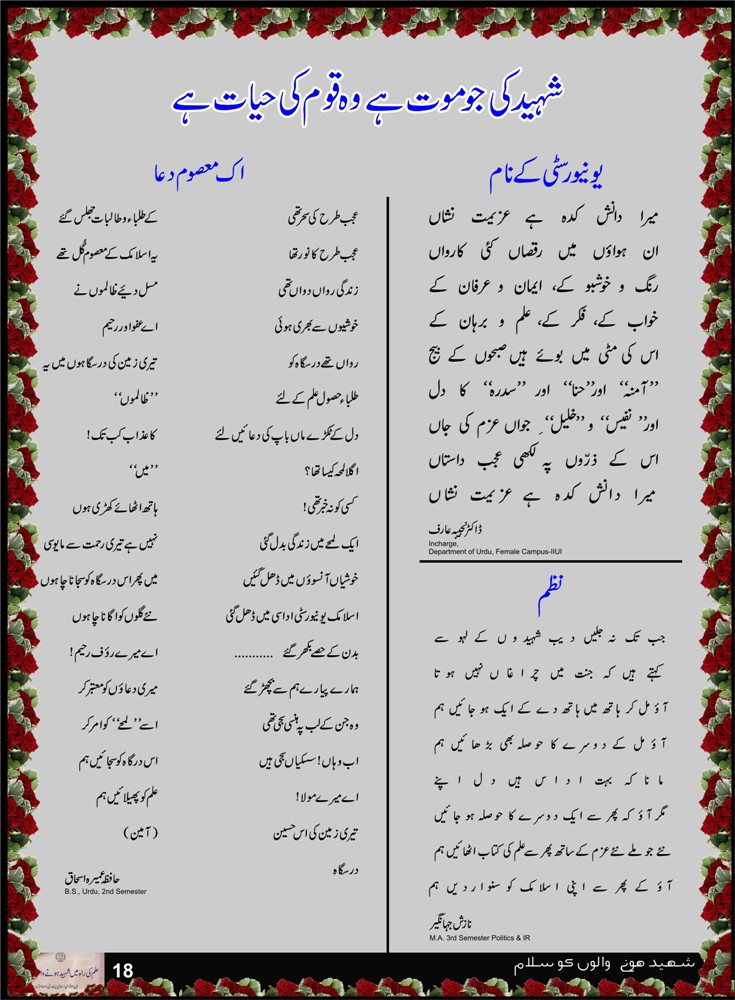 شہید کی جو موت ہے وہ قوم کی حیات ہے
یونیورسٹی کے نام
میرا دانش کدہ ہے عزیمت نشاں
ان ہواؤں میں رقصاں کئی کارواں
رنگ و خوشبو کے، ایمان و عرفان کے
خواب کے، فکر کے، علم و برہان کے
اس کی مٹی میں بوئے ہیں صبحوں کے بیج
”آمنہ“ اور ”حنا“ اور ”سدرہ“ کا دل
اور ”نفیس“ و ”خلیل“ جواں عزم کی جاں
اس کے ذرّوں پہ لکھی عجب داستاں
میرا دانش کدہ ہے عزیمت نشاں
ڈاکٹر نجیبہ عارف
Incharge,
Department of Urdu, Female Campus-IIUI
نظم
جب تک نہ جلیں دیپ شہیدوں کے لہو سے
کہتے ہیں کہ جنت میں چراغاں نہیں ہوتا
آؤ مل کر ہاتھ میں ہاتھ دے کے ایک ہو جائیں ہم
آؤ مل کے دوسرے کا حوصلہ بھی بڑھائیں ہم
مانا کہ بہت اداس ہیں دل اپنے
مگر آؤ کہ پھر سے ایک دوسرے کا حوصلہ ہو جائیں
نئے جوملے نئے عزم کے ساتھ پھر سے علم کی کتاب اٹھائیں ہم
آؤ کے پھر سے اپنی اسلامک کو سنوار دیں ہم
نازش جہانگیر
M.A. 3rd Semester Politics & IR
اک معصوم دعا
عجب طرح کی سحر تھی
عجب طرح کا نور تھا
زندگی رواں دواں تھی
خوشیوں سے بھری ہوئی
رواں تھے درسگاہ کو
طلباء حصول علم کے لئے
دل کے ٹکڑے ماں باپ کی دعائیں لئے
اگلا لمحہ کیسا تھا؟
کسی کو نہ خبر تھی!
ایک لمحے میں زندگی بدل گئی
خوشیاں آنسوؤں میں ڈھل گئیں
اسلامک یونیورسٹی اداسی میں ڈھل گئی
بدن کے حصے بکھر گئے ...........
ہمارے پیارے ہم سے بچھڑ گئے
وہ جن کے لب پہ ہنسی سجی تھی
اب وہاں! سسکیاں سجی ہیں
اے میرے مولا!
تیری زمین کی اس حسین
درسگاہ
کے طلباء و طالبات جھلس گئے
یہ اسلامک کے معصوم گُل تھے
مسل دئیے ظالموں نے
اے عفو اور رحیم
تیری زمین کی درسگاہوں میں یہ
”ظالموں“
کا عذاب کب تک!
”میں“
ہاتھ اٹھائے کھڑی ہوں
نہیں ہے تیری رحمت سے مایوسی
میں پھر اس درسگاہ کو سجانا چاہوں
نئے گلوں کو اگانا چاہوں
اے میرے رؤف رحیم!
میری دعاؤں کو معتبر کر
اسے ”لمحے“ کو امر کر
اس درگاہ کو سجائیں ہم
علم کو پھیلائیں ہم
(آمین)
حافظہ عمیرہ اسحاق
B.S., Urdu, 2nd Semester
علم کی راہ میں شہید ہونے وا
18
شہید ہونے والوں کو سلام